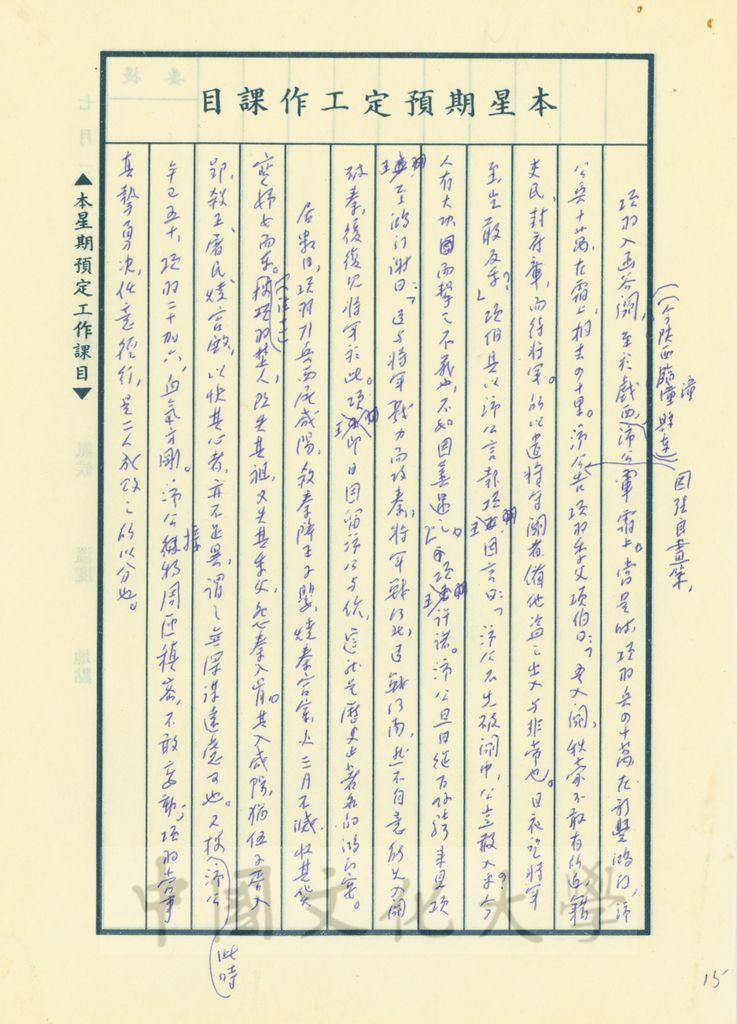 本星期預定工作課目
（今陝西臨潼縣東）
因張良畫策，
項羽入函谷關，至於戲西，沛公軍霸上。當是時，項羽兵四十萬，在新豐鴻門，沛
公兵十萬，在霸上，相去四十里。沛公告項羽季父項伯曰：「吾入關，秋豪不敢有所近，籍
吏民，封府庫，而待將軍。所以遣將守關者，備他盜之出入與非常也。日夜望將軍
至，豈敢反乎？」項伯具以沛公言報項羽，因言曰：「沛公不先破關中，公豈敢入乎？今
人有大功，因而擊之不義也，不如因善遇之。」項羽許諾。沛公旦日從百餘騎來見項
羽至鴻門謝曰：「臣與將軍戮力而攻秦，將軍戰河北，臣戰河南，然不自意能先入關
破秦，復見將軍於此。」項羽即日因留沛公與飲，這就是歷史上著名的鴻門宴。
居數日，項羽引兵西屠咸陽，殺秦降王子嬰，燒秦宮室，火三月不滅，收其貨
寶婦女而東。按項羽楚人，既失其祖，又失其季父，怨秦入骨。其入咸陽，猶伍子胥入
郢，殺王屠民燒宮殿，以快其心者，亦不足異，謂之無深謀遠慮可也。又按沛公
此時
年已五十，項羽二十加六，血氣方剛。沛公周匝積密，不敢妄動；項羽當事
真摯勇決，任意徑行，是二人成敗之所以分也。
▲本星期預定工作課目▼
中國文化大學
15